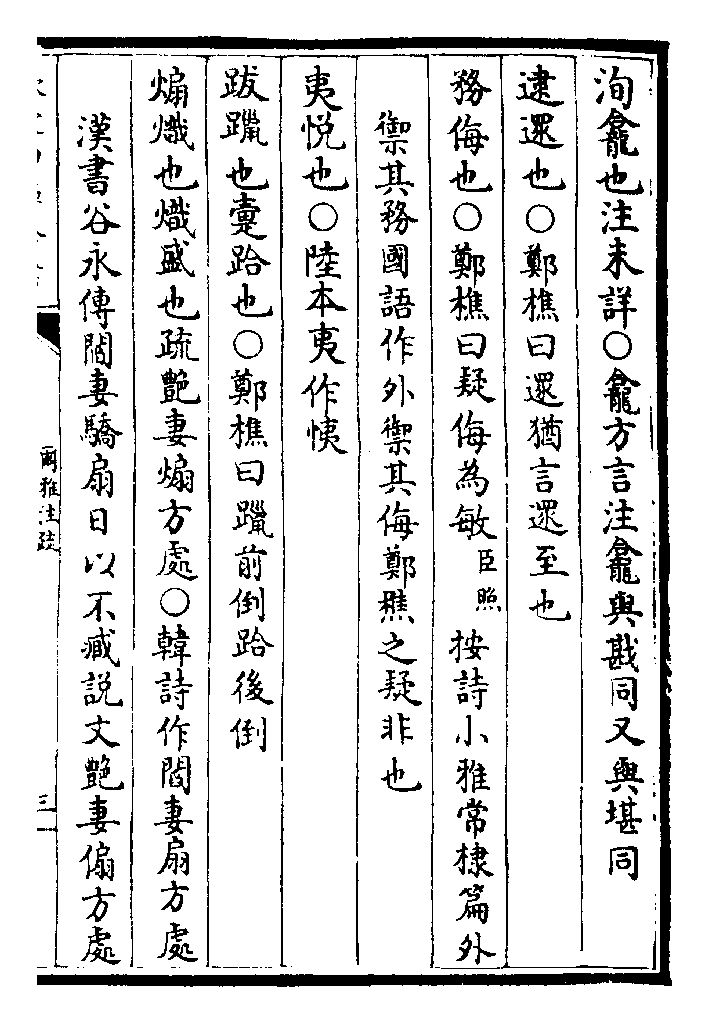 洵龕也注未詳〇龕方言注龕與戡同又與堪同
逮還也〇鄭樵曰還猶言還至也
務侮也〇鄭樵曰疑侮為敏臣照按詩小雅常棣篇外
禦其務國語作外禦其侮鄭樵之疑非也
夷悅也〇陸本夷作恞
跋躐也疐跲也〇鄭樵曰躐前倒跲後倒
煽熾也熾盛也疏艶妻煽方處〇韓詩作閻妻扇方處
漢書谷永傳閻妻驕扇日以不臧説文艶妻傓方處
爾雅注疏
三